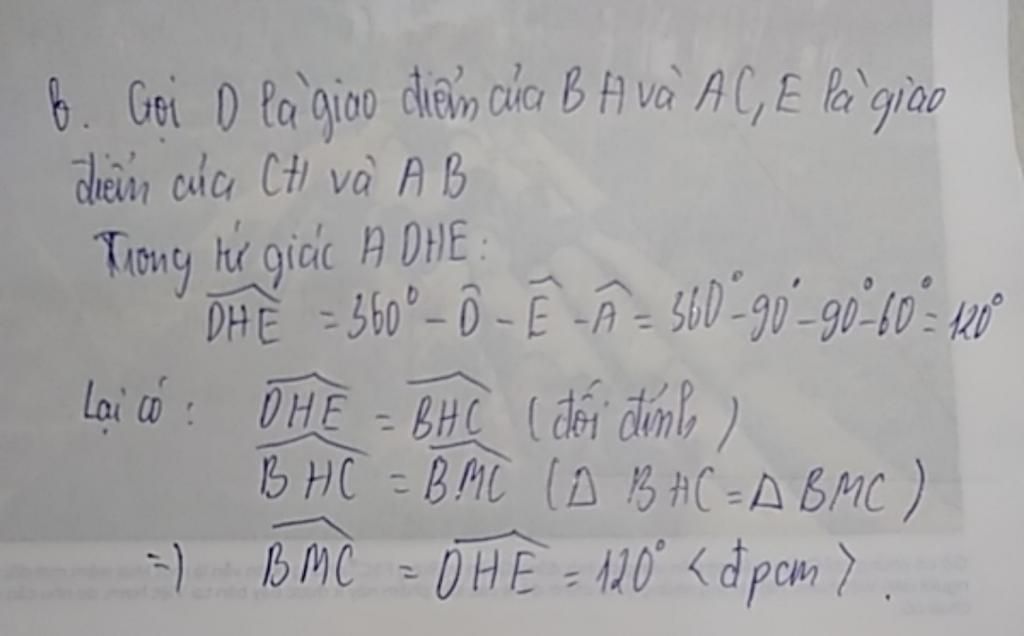 b. Gọi D là giao điểm của BH và AC, E là giao
điểm của CH và AB
Trong tứ giác ADHE:
\widehat{DHE} = 360° - \widehat{D} - \widehat{E} - \widehat{A} = 360° - 90° - 90° - 60° = 120°
Lại có: \widehat{DHE} = \widehat{BHC} (đối đỉnh)
\widehat{BHC} = \widehat{BMC} (Δ BHC = Δ BMC)
=> \widehat{BMC} = \widehat{DHE} = 120° <đpcm>.